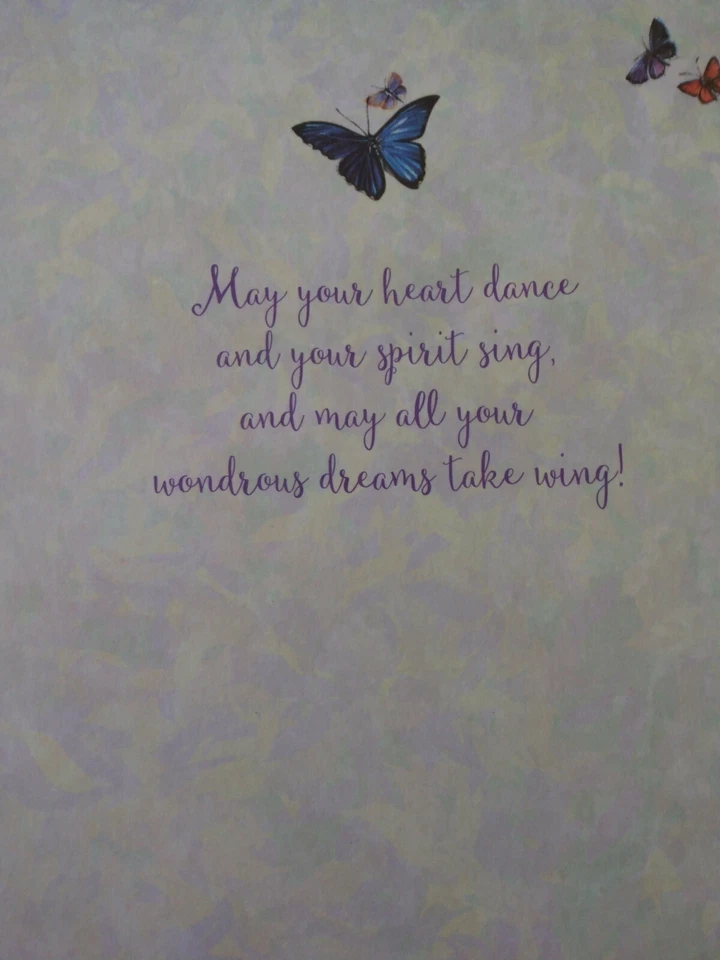 May your heart dance
and your spirit sing,
and may all your
wondrous dreams take wing!